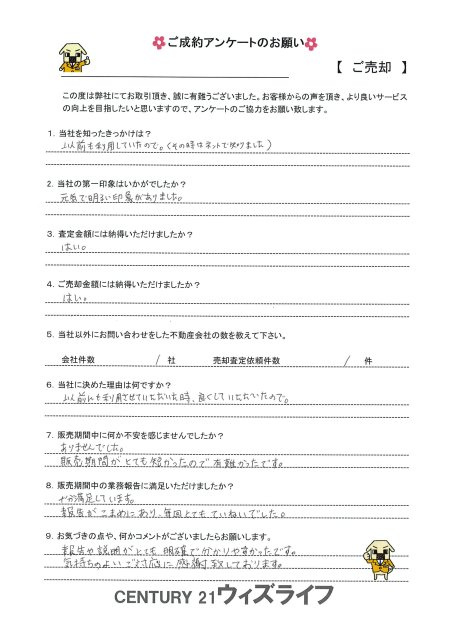 ご成約アンケートのお願い
【 ご売却 】
この度は弊社にてお取引頂き、誠に有難うございました。お客様からの声を頂き、より良いサービス
の向上を目指したいと思いますので、アンケートのご協力をお願い致します。
1．当社を知ったきっかけは？
以前も利用していたので。（その時はネットで知りました）
2．当社の第一印象はいかがでしたか？
元気で明るい印象がありました。
3．査定金額には納得いただけましたか？
はい。
4．ご売却金額には納得いただけましたか？
はい。
5．当社以外にお問い合わせをした不動産会社の数を教えて下さい。
会社件数 / 社 売却査定依頼件数 / 件
6．当社に決めた理由は何ですか？
以前にも利用させていただいた時、良くしていただいたので。
7．販売期間中に何か不安を感じませんでしたか？
ありませんでした。
販売期間がとても短かったので有難かったです。
8．販売期間中の業務報告に満足いただけましたか？
満足しています。
報告がこまめにあり、毎回とてもていねいでした。
9．お気づきの点や、何かコメントがございましたらお願いします。
報告や説明がとても明確で分かりやすかったです。
気持ちのよいご対応に感謝致しております。
CENTURY 21 ウィズライフ